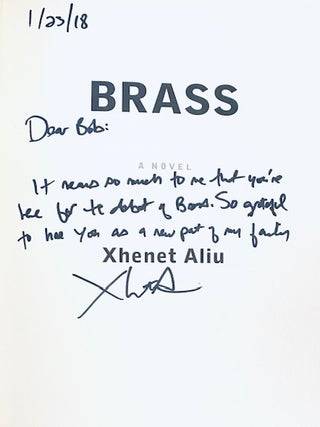 1/23/18
BRASS
Dear Bob:
A NOVEL
It means so much to me that you're
here for the debut of Brass. So grateful
to have you as a new part of my family
Xhenet Aliu